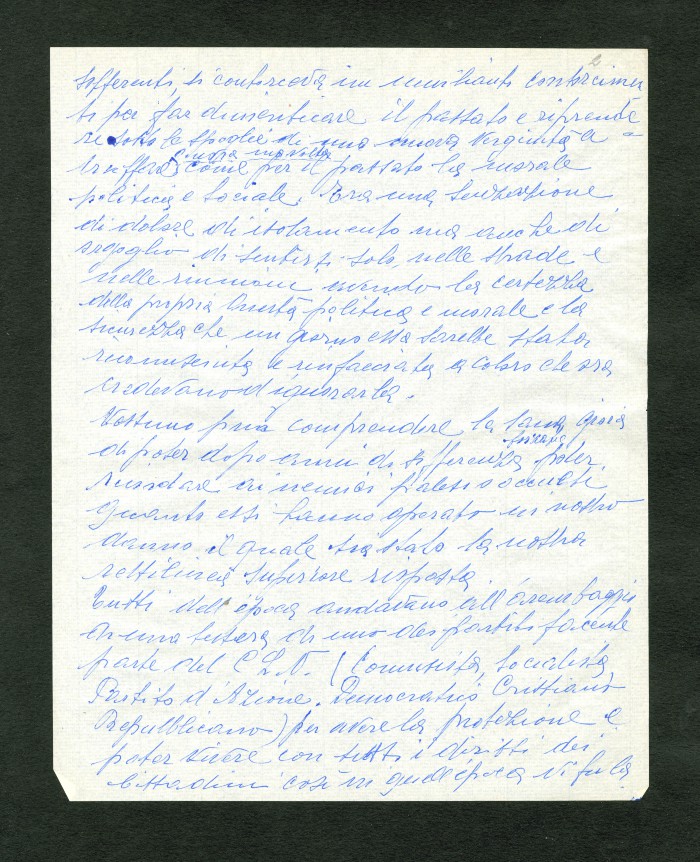 2
sofferenti, si contorceva in umilianti contorcimen
ti per far dimenticare il passato e riprende
re sotto le spoglie di una nuova verginità a
truffare come per il passato la morale
ancora una volta
politica e sociale. Era una sensazione
di dolore di isolamento ma anche di
orgoglio di sentirsi solo, nelle strade e
nelle riunioni avendo la certezza
della propria onestà politica e morale e la
sicurezza che un giorno essa sarebbe stata
riconosciuta e rinfacciata a coloro che ora
credevano d'ignorarla.
Nessuno può comprendere la gioia
di poter dopo anni di sofferenza poter
ai nemici palesi o occulti
quanto essi hanno operato in nostro
danno, e quale sia stata la nostra
rettilinea superiore risposta
Tutti dell'epoca andavano all'arrembaggio
di una tessera di uno dei partiti facente
parte del C.L.N. (Comunista, Socialista
Partito d'Azione. Democratico Cristiano
Repubblicano) per avere la protezione e
poter vivere con tutti i diritti dei
cittadini così in quell'epoca vi fu la